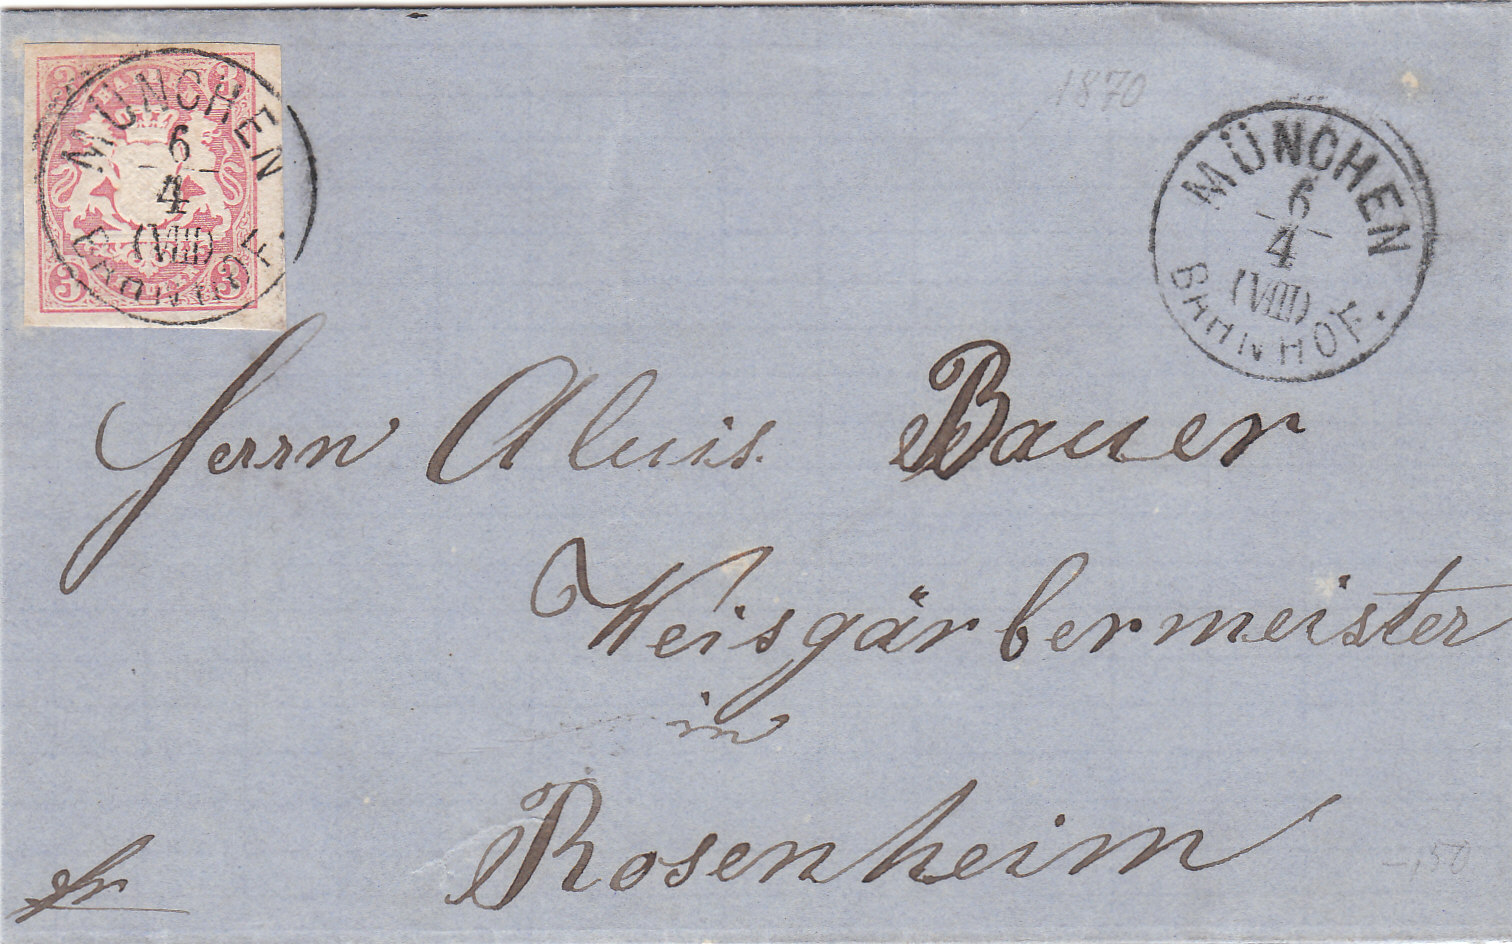 3 BAYERN 3
3 3
MÜNCHEN
6
4
(VIII)
BAHNHOF.
1870
MÜNCHEN
6
4
(VIII)
BAHNHOF.
Herrn Aluis Bauer
Weisgärbermeister
in
Rosenheim
fr
-,50